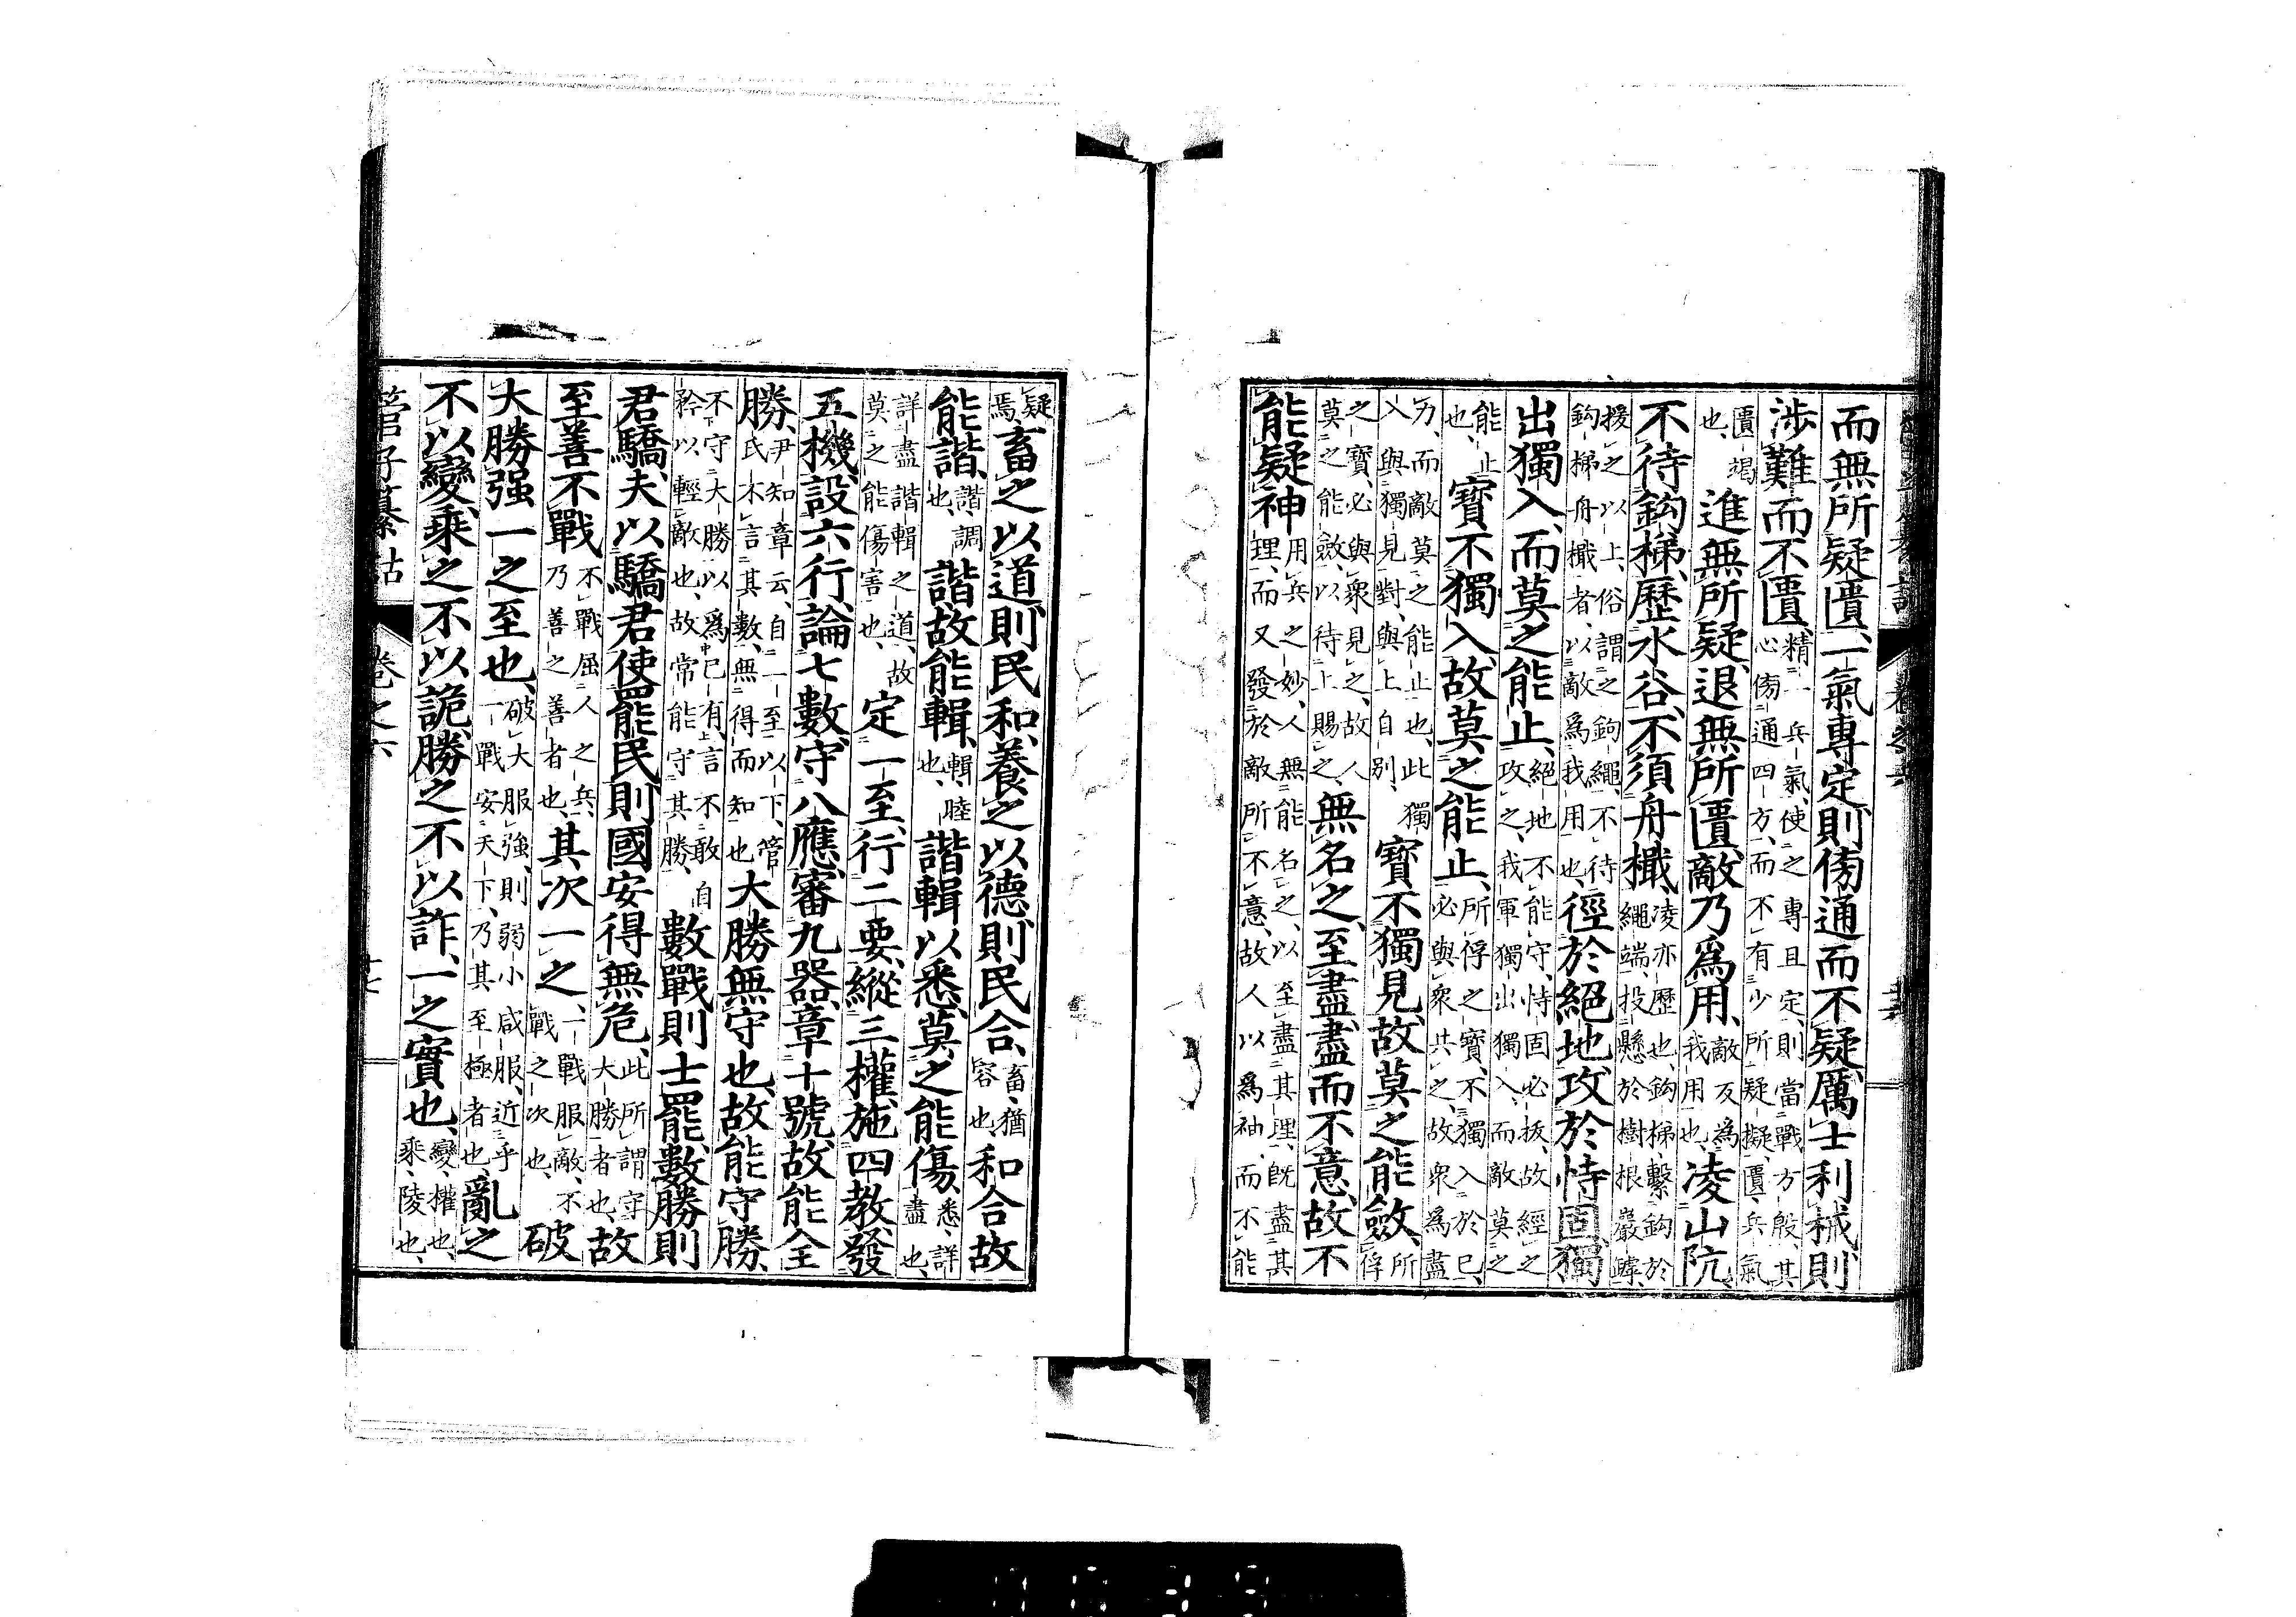 而無所疑匱、一氣專定則傍通而不疑、厲士利械則
涉難而不匱、精一兵氣、使之專且定、則當戰方殷、其心傍通四方、而不有少所疑擬、匱兵氣
匱竭也、進無所疑、退無所匱、敵乃爲用、敵反為我用也、凌山阬
不待鈎梯、歷水谷、不須舟檝、凌亦歷也、鈎梯繫鈎於繩端、投懸於樹根巖罅、
援之以上、俗謂之鉤繩、不待鈎梯舟檝者、以敵爲我用也、徑於絕地、攻於恃固、獨
出獨入、而莫之能止、絕地不能守、恃固必拔、故經之攻之、我軍獨出獨入、而敵莫之
能止也、寶不獨入、故莫之能止、所俘之寶、不獨入於已、必與衆共之、故衆爲盡
力、而敵莫之能止也、此獨入與獨見對、與上自別、寶不獨見、故莫之能斂、所俘
之寶、必與衆見之、故人莫之能斂、以待上賜之、無名之、至盡、盡而不意、故不
能疑神、用兵之妙、人無能名之、以至盡其理、既盡其理、而又發於敵所不意、故人以爲神、而不能
疑焉、畜之以道、則民和、養之以德、則民合、畜、猶容也、和合故
能諧、諧、調也、諧故能輯、輯、睦也、諧輯以悉、莫之能傷、悉、詳盡也、
詳盡諧輯之道、故莫之能傷害也、定一至、行二要、縱三權、施四教、發
五機、設六行、論七數、守八應、審九器、章十號、故能全
勝、尹知章云、自一至以下、管氏不言其數、無得而知也大勝無守也、故能守勝、
不守大勝以爲已有、言不敢自矜以輕敵也、故常能守其勝、數戰則士罷、數勝則
君驕、夫以驕君使罷民、則國安得無危、此所謂守大勝者也、故
至善不戰、不戰屈人之兵、乃善之善者也、其次一之、一戰服敵、不戰之次也、破
大勝强、一之至也、破大服强、則弱小咸服、近乎一戰安天下、乃其至極者也、亂之
不以變、乘之不以詭、勝之不以詐、一之實也、變、權也、乘、陵也、
管子纂詁　卷之六　十七